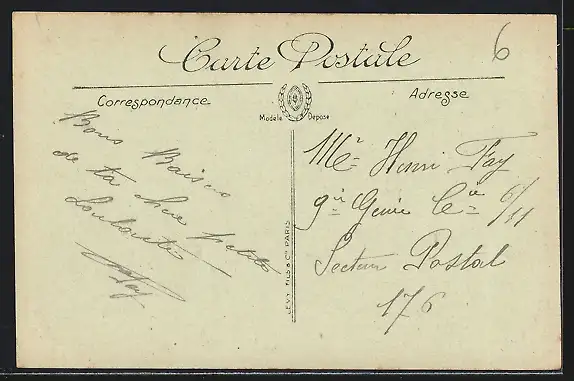 6
Carte Postale
Correspondance
Adresse
Modèle Déposé
Bons Baisers
de ta chère petite
Louloute
Fay
LEVY FILS & Cie PARIS
Mr Henri Fay
9ie Génie Cie 6/11
Secteur Postal
176